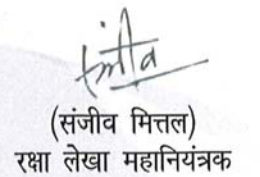 संजीव
(संजीव मित्तल)
रक्षा लेखा महानियंत्रक